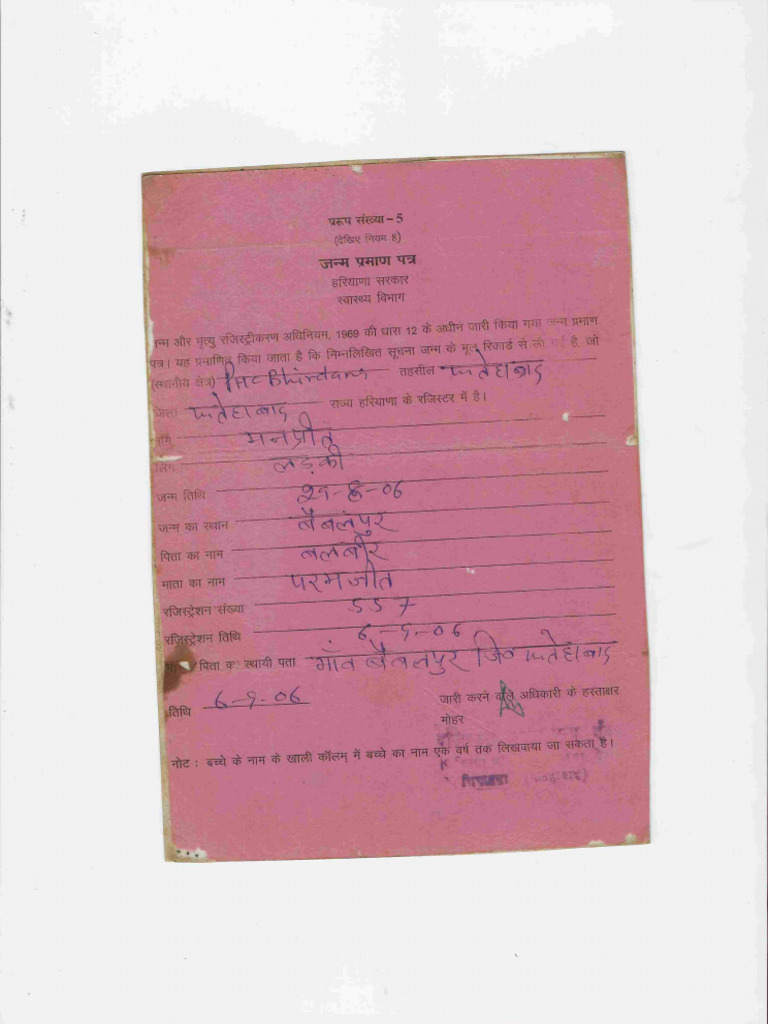 प्ररूप संख्या-5
(देखिए नियम 8)
जन्म प्रमाण पत्र
हरियाणा सरकार
स्वास्थ्य विभाग
जन्म और मृत्यु रजिस्ट्रीकरण अधिनियम, 1969 की धारा 12 के अधीन जारी किया गया जन्म प्रमाण
पत्र। यह प्रमाणित किया जाता है कि निम्नलिखित सूचना जन्म के मूल रिकार्ड से ली गई है, जो
(स्थानीय क्षेत्र) PHC तहसील फतेहाबाद
जिला फतेहाबाद राज्य हरियाणा के रजिस्टर में है।
नाम मनप्रीत
लिंग लड़की
जन्म तिथि
जन्म का स्थान बैबलपुर
पिता का नाम बलबीर
माता का नाम परमजीत
रजिस्ट्रेशन संख्या 557
रजिस्ट्रेशन तिथि 6-9-06
पिता का स्थायी पता गाँव बैबलपुर जि० फतेहाबाद
तिथि 6-9-06 जारी करने वाले अधिकारी के हस्ताक्षर
मोहर
नोट : बच्चे के नाम के खाली कॉलम् में बच्चे का नाम एक वर्ष तक लिखवाया जा सकता है।